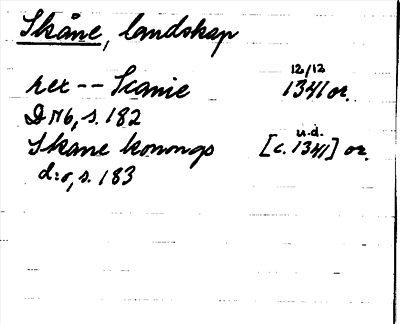 Skåne, landskap
rex -- Scanie 12/12 1341 or.
DN 6, s. 182
Skane konongs [u.d. c. 1341] or.
d:o, s. 183